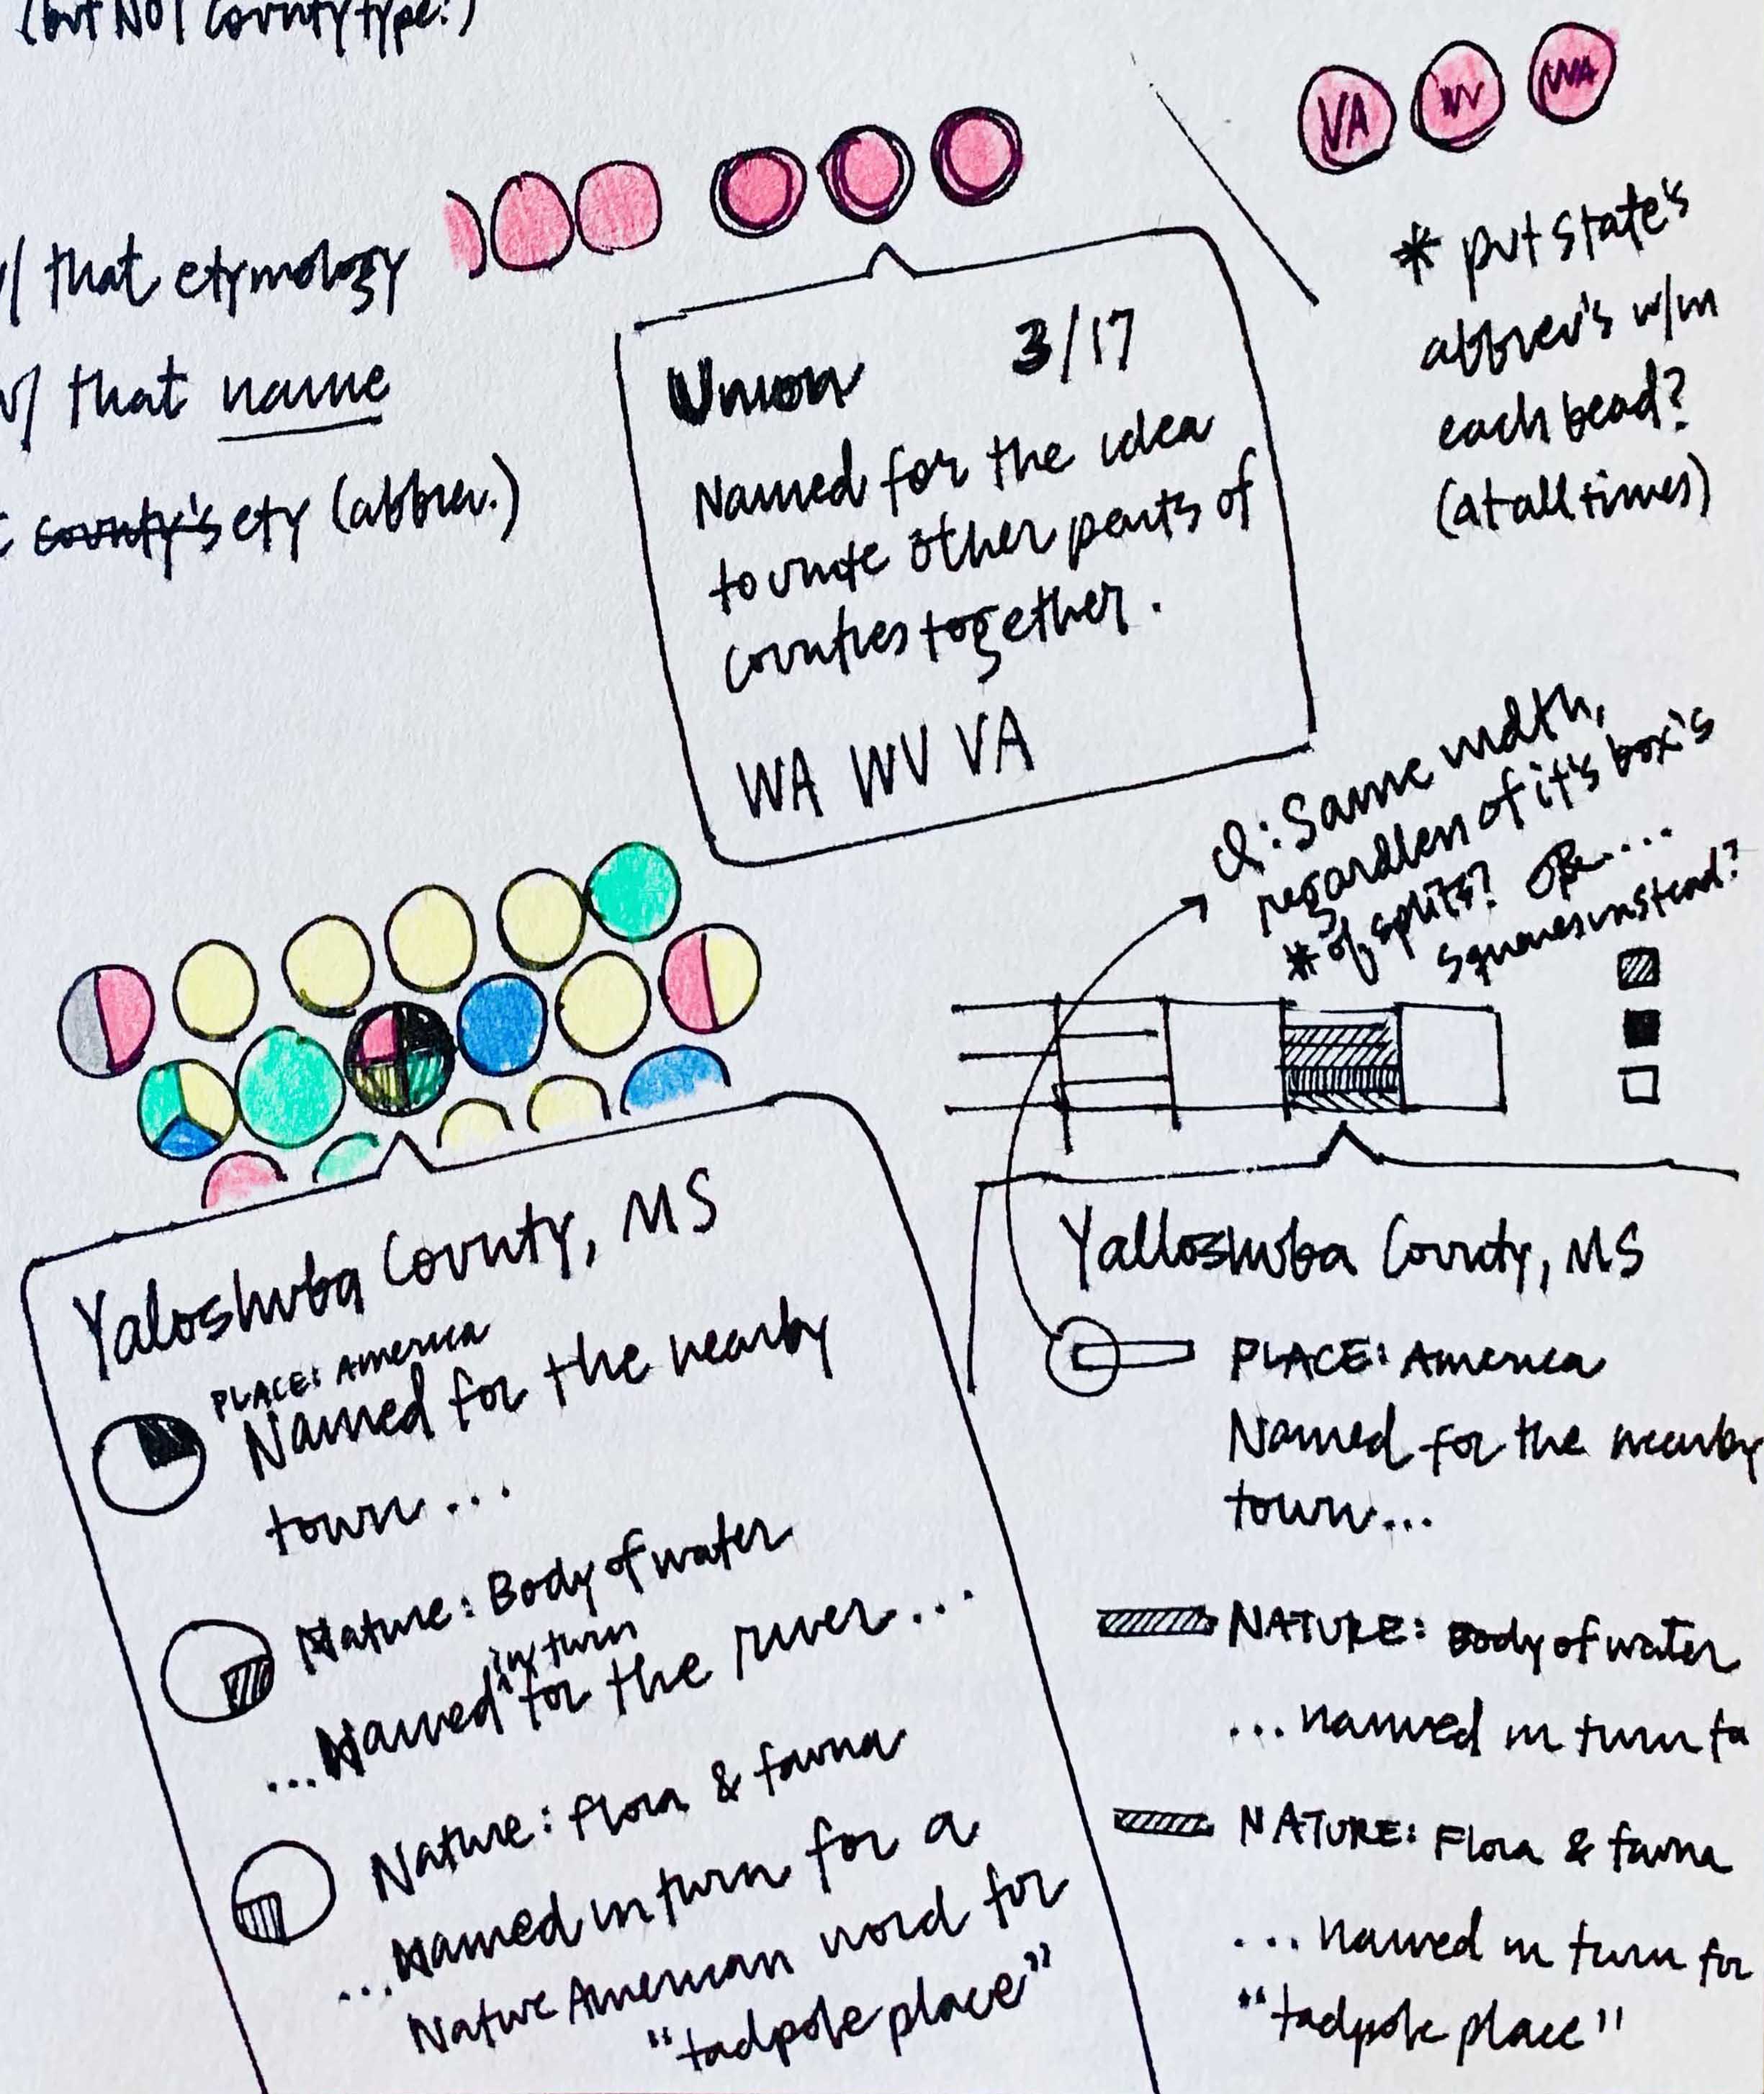 (but NOT county type!)
w/ that etymology
w/ that name
county's ety (abbrev.)
VA WV WA
* put state's
abbrev's w/in
each bead?
(at all times)
Union 3/17
Named for the idea
to unite other parts of
counties together.
WA WV VA
Q: Same width,
regardless of it's box's
# of splits? OR....
squares instead?
Yaloshuba County, MS
PLACE: America
Named for the nearby
town...
Nature: Body of water
in turn
...Named for the river...
Nature: Flora & fauna
...Named in turn for a
Native American word for
"tadpole place"
Yalloshuba County, MS
PLACE: America
Named for the nearby
town...
NATURE: Body of water
...named in turn fo
NATURE: Flora & fauna
...named in turn for
"tadpole place"